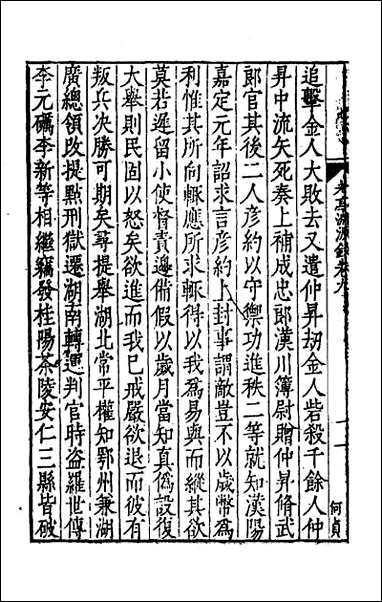 追擊金人大敗去又遣仲昇刼金人砦殺千餘人仲
昇中流矢死奏上補成忠郎漢川簿尉贈仲昇脩武
郎官其後二人彦約以守禦功進秩二等就知漢陽
嘉定元年詔求言彦約上封事謂敵豈不以歲幣爲
利惟其所向輒應所求輒得以我爲易與而縱其欲
莫若遲留小使督責邊備假以歲月當知真僞設復
大舉則民固以怒矣欲進而我已戒嚴欲退而彼有
叛兵决勝可期矣尋提舉湖北常平權知鄂州兼湖
廣總領改提點刑獄遷湖南轉運判官時盗羅世傳
李元礪李新等相繼竊發桂陽茶陵安仁三縣皆破
考亭淵源錄卷九
何貞